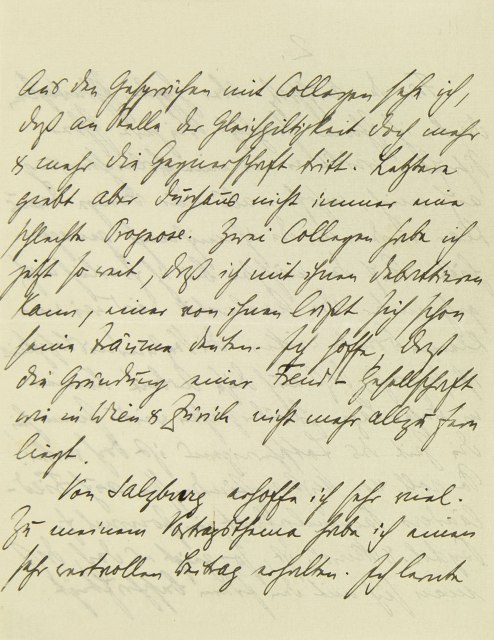 2.
Aus den Gesprächen mit Collegen sehe ich,
daß an Stelle der Gleichgiltigkeit doch mehr
& mehr die Gegnerschaft tritt. Letztere
giebt aber durchaus nicht immer eine
schlechte Prognose. Zwei Collegen habe ich
jetzt so weit, daß ich mit ihnen debattieren
kann, einer von ihnen läßt sich schon
seine Träume deuten. Ich hoffe, daß
die Gründung einer Freud-Gesellschaft
wie in Wien & Zürich nicht mehr allzu fern
liegt.
Von Salzburg erhoffe ich sehr viel.
Zu meinem Vortragsthema habe ich einen
sehr wertvollen Beitrag erhalten. Ich lernte